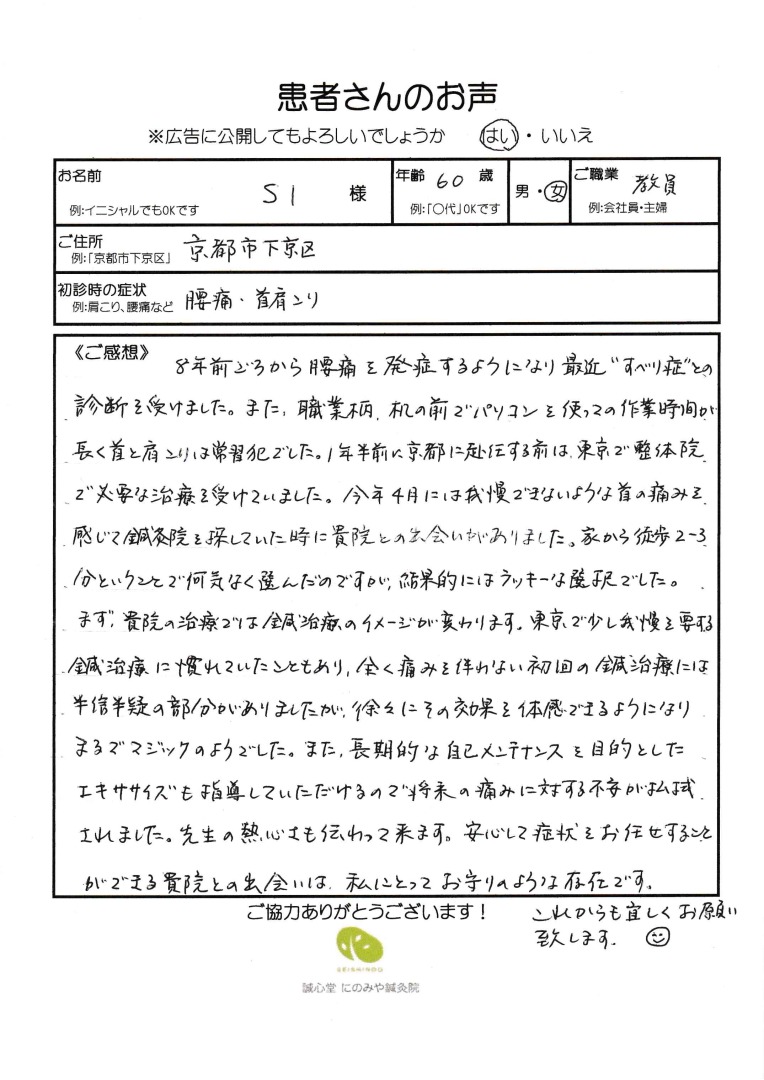 患者さんのお声
※広告に公開してもよろしいでしょうか　はい・いいえ
お名前　SI　様　年齢　60　歳　男・女　ご職業　教員
例:イニシャルでもOKです　例:「〇代」OKです　例:会社員・主婦
ご住所　京都市下京区
例:「京都市下京区」
初診時の症状　腰痛・首肩こり
例:肩こり、腰痛など
《ご感想》　8年前ごろから腰痛を発症するようになり最近"すべり症"との
診断を受けました。また、職業柄、机の前でパソコンを使っての作業時間が
長く首と肩こりは常習犯でした。1年半前に京都に赴任する前は、東京で整体院
で必要な治療を受けていました。今年4月には我慢できないような首の痛みを
感じて鍼灸院を探していた時に貴院との出会いがありました。家から徒歩2-3
分ということで何気なく選んだのですが、結果的にはラッキーな選択でした。
まず、貴院の治療では鍼治療のイメージが変わります。東京で少し我慢を要する
鍼治療に慣れていたこともあり、全く痛みを伴わない初回の鍼治療には
半信半疑の部分がありましたが、徐々にその効果を体感できるようになり
まるでマジックのようでした。また、長期的な自己メンテナンスを目的とした
エキササイズも指導していただけるので将来の痛みに対する不安が払拭
されました。先生の熱心さも伝わって来ます。安心して症状をお任せすること
ができる貴院との出会いは、私にとってお守りのような存在です。
これからも宜しくお願い
致します。
ご協力ありがとうございます！
SEISHINDO
誠心堂 にのみや鍼灸院